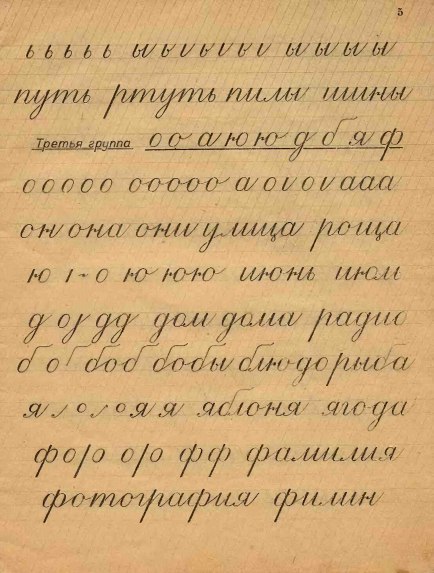 5
ь ь ь ь ь ы ь ı ь ı ь ı ь ı ы ы ы ы
путь ртуть пилы шины
Третья группа о о а ю ю д б я ф
о о о о о о о о о о а о ı о ı а а а
он она они улица роща
ю ı - о ю ю ю июнь июль
д о д д дом дома радио
б о б о б бобы блюдо рыба
я о я я яблоня ягода
ф о р о р ф ф фамилия
фотография филин